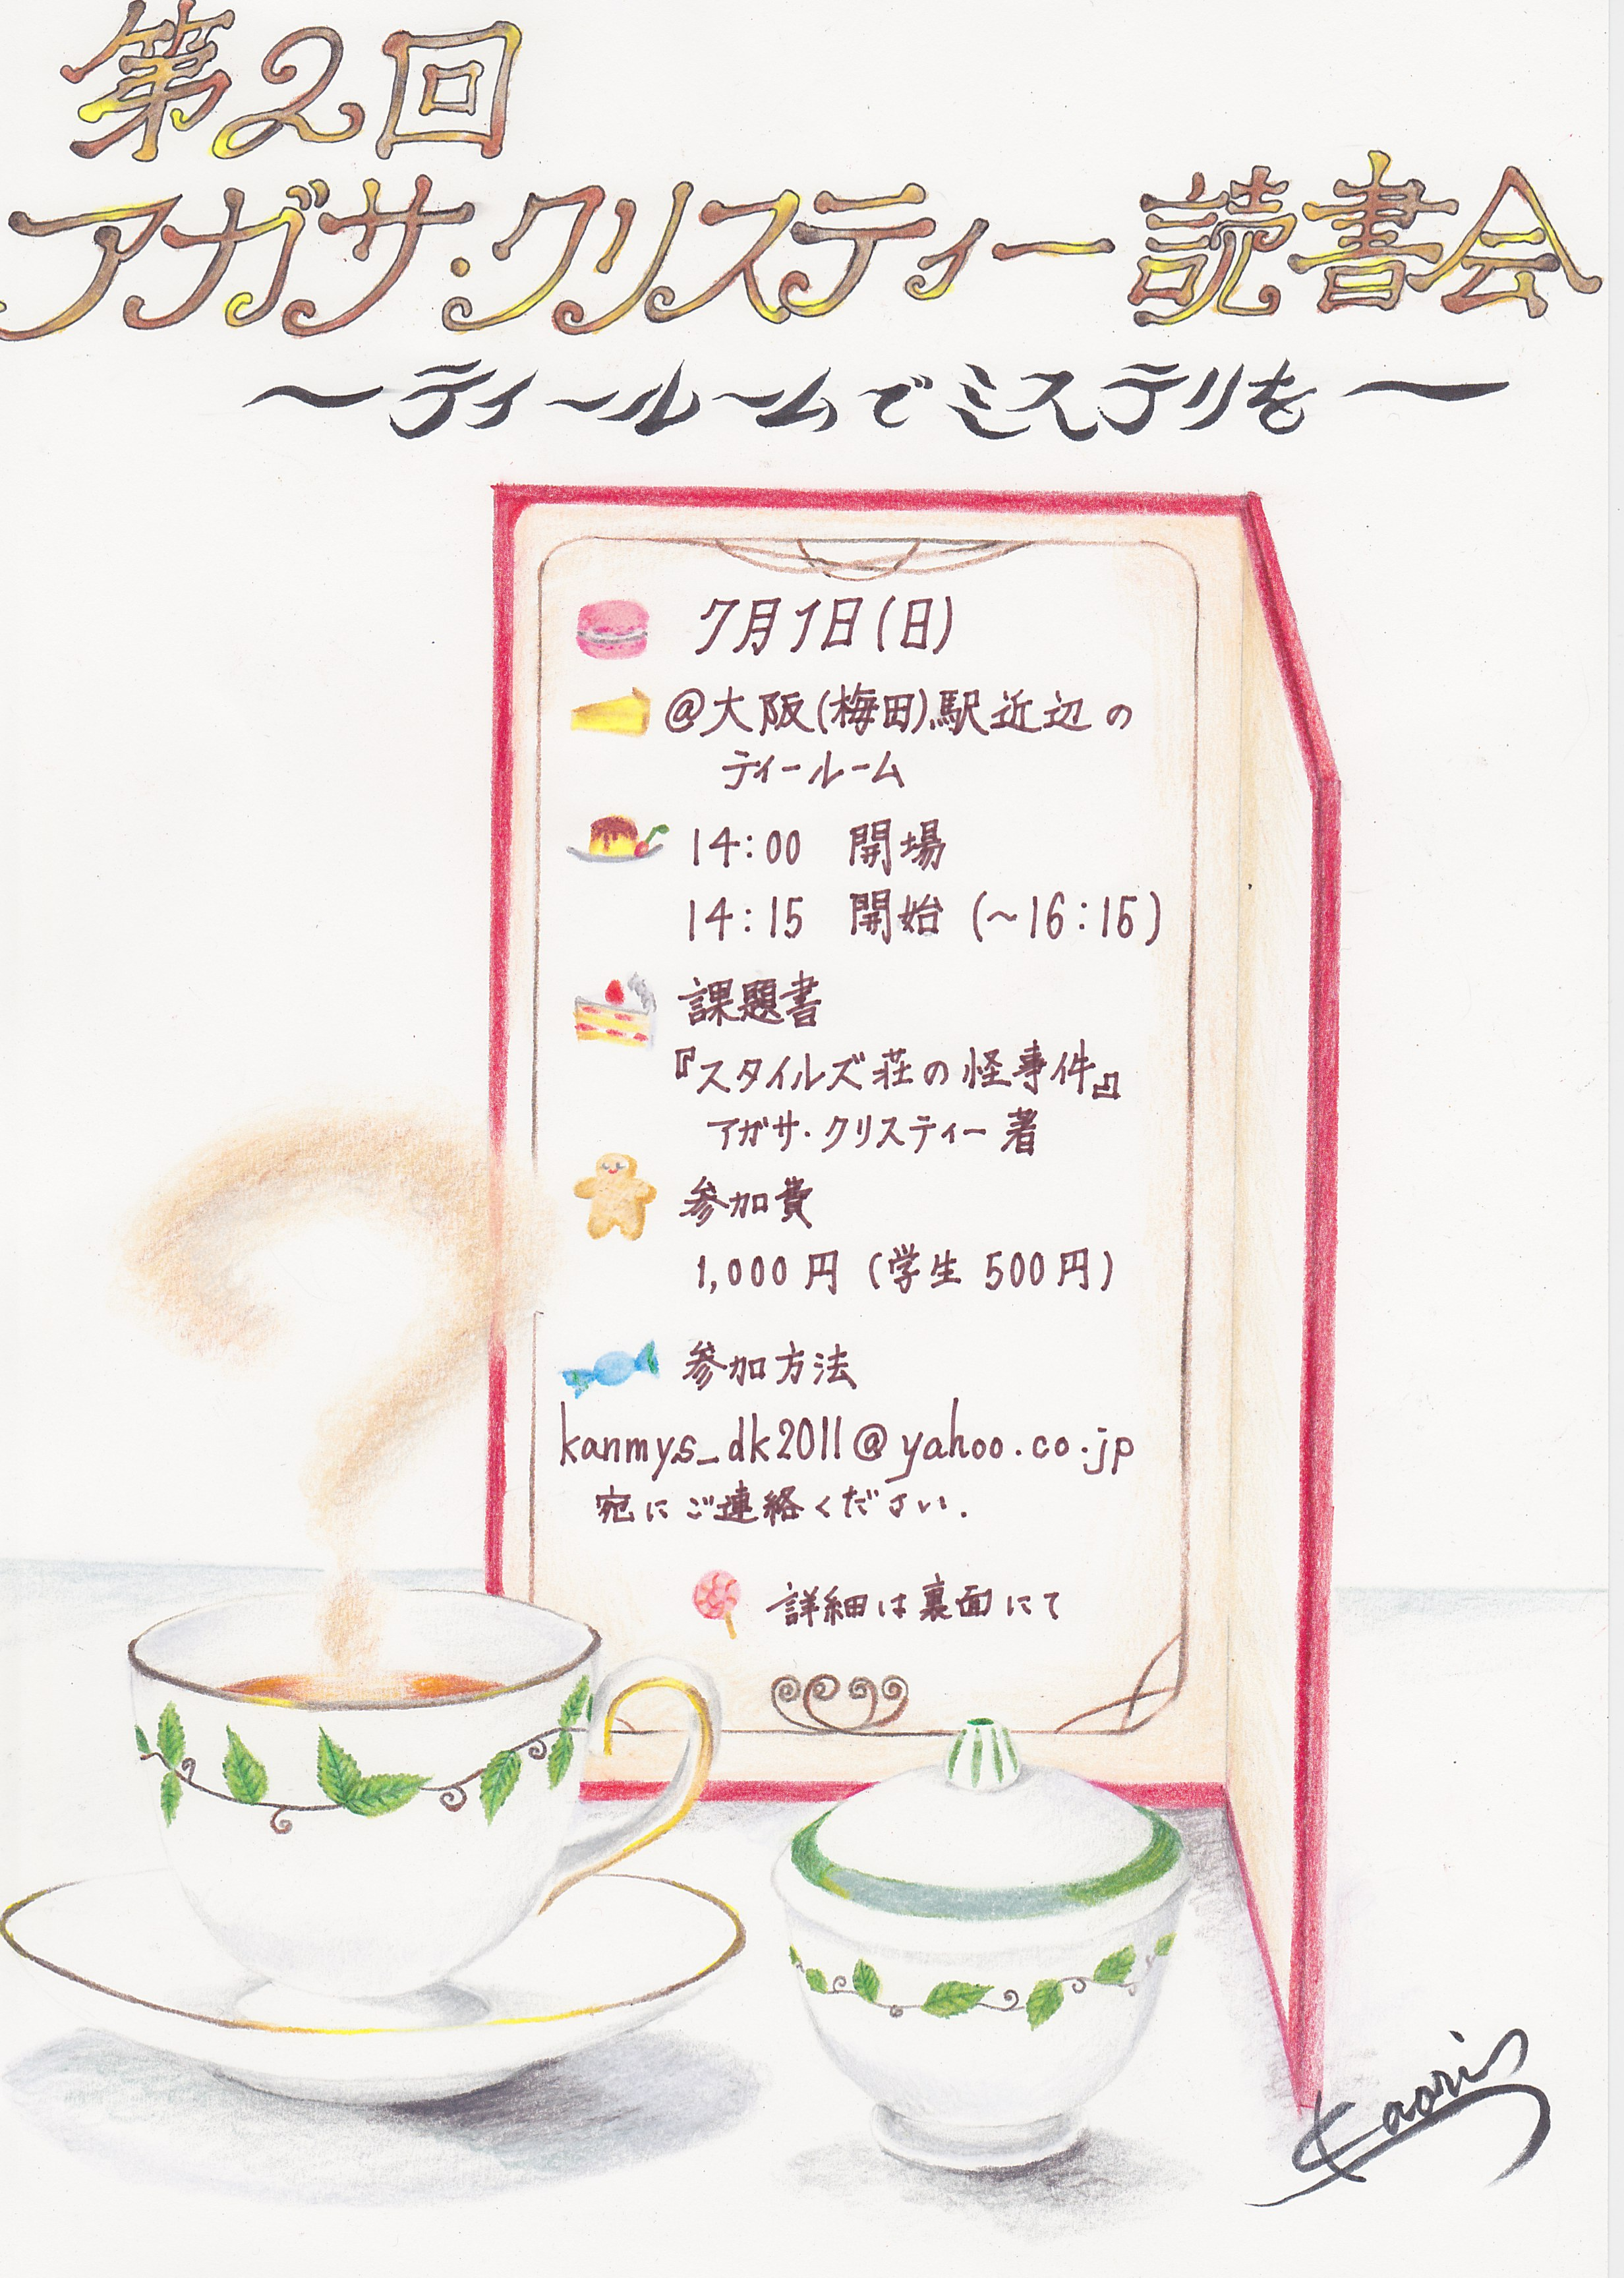 第2回
アガサ・クリスティー読書会
～ティールームでミステリを～
7月1日(日)
@大阪(梅田)駅近辺の
ティールーム
14:00 開場
14:15 開始 (~16:15)
課題書
『スタイルズ荘の怪事件』
アガサ・クリスティー 著
参加費
1,000円 (学生 500円)
参加方法
kanmys_dk2011@yahoo.co.jp
宛にご連絡ください.
詳細は裏面にて
Kaori